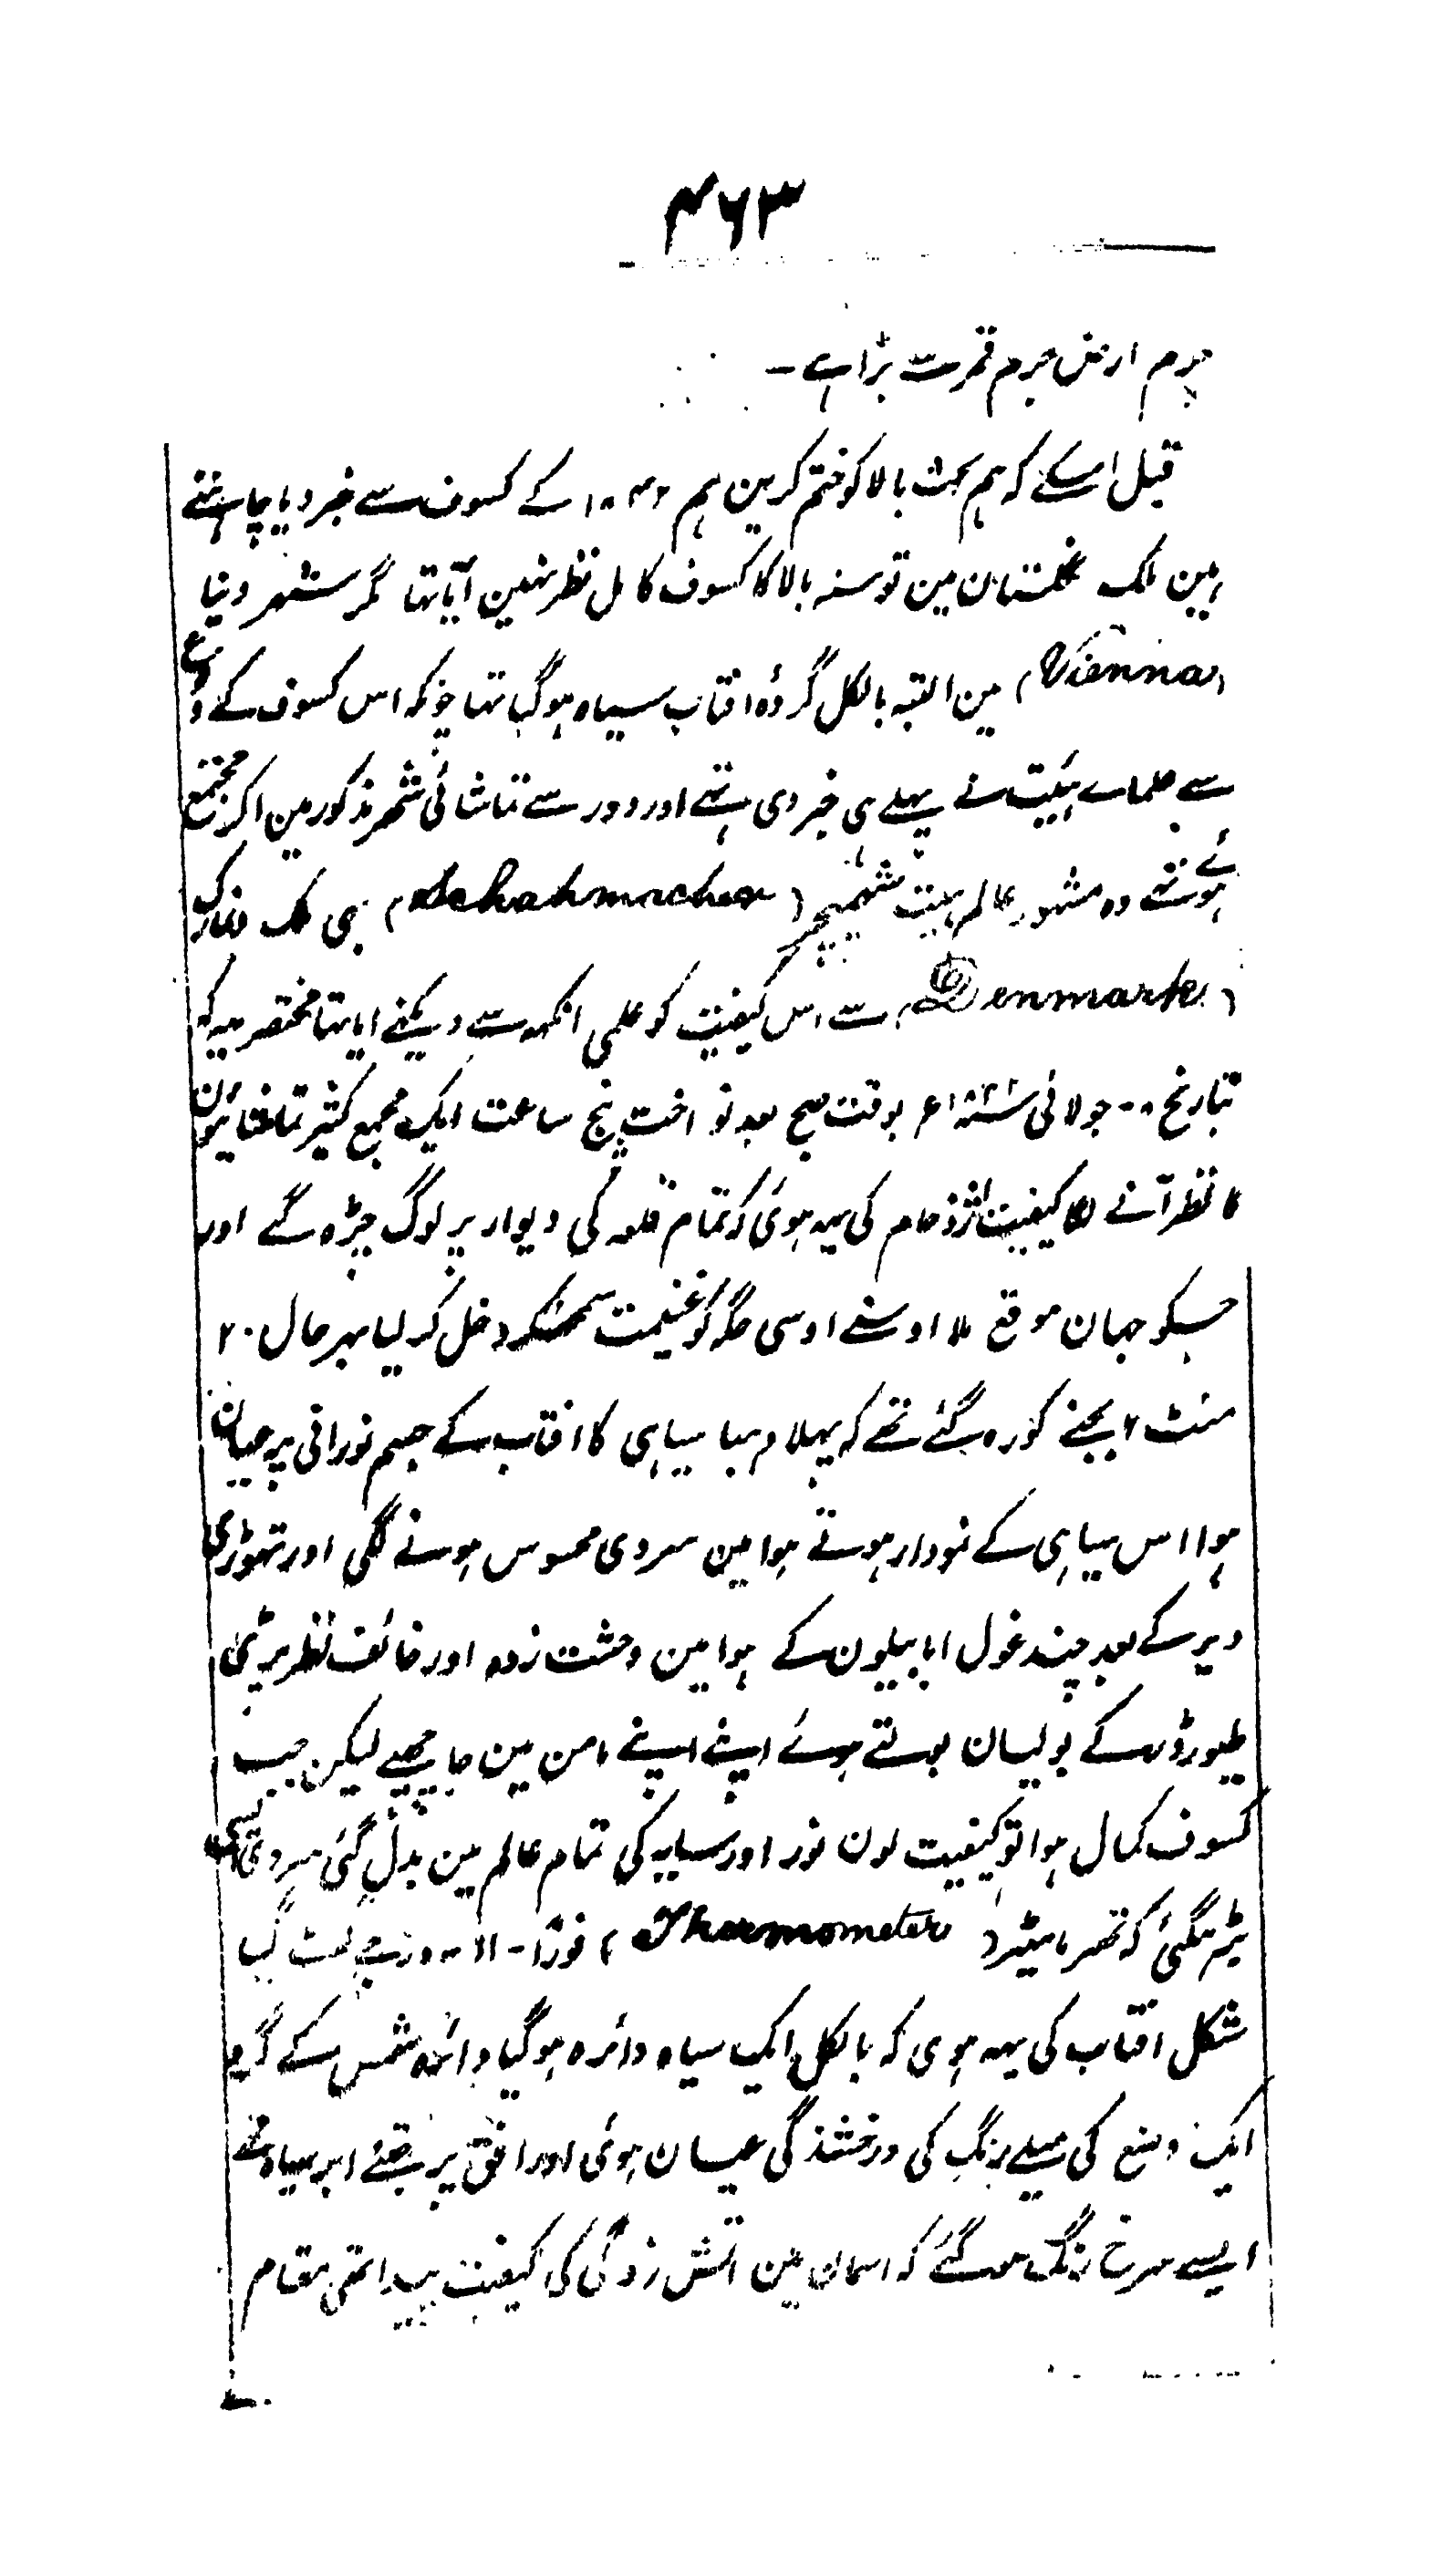 ۴۶۳
جرم ارض جرم قمر سے بڑا ہے ۔
قبل اسکے کہ ہم بحث بالا کو ختم کرین ہم ۱۸۴۲ کے کسوف سے خبر دیا چاہتے
ہین ملک انگلستان مین تو سنہ بالا کا کسوف کامل نظر نہین آیا تہا مگر شہر وینا
(Vienna) مین البتہ بالکل گردۂ افتاب سیاہ ہو گیا تہا چونکہ اس کسوف کے وقوع
سے علماے ہئیت نے پہلے ہی خبر دی تہے اور دور سے تماشائی شہر مذکور مین اکر مجتمع
ہوئے تہے وہ مشہور عالم ہیت (Schahmacher) بہی ملک ڈنمارک
(Denmark) سے اس کیفیت کو علمی انکہہ سے دیکہنے ایا تہا مختصر یہ کہ
بتاریخ ۸ جولائی ۱۸۴۲ء بوقت صبح بعد نواخت پنج ساعت ایک مجمع کثیر تماشائیون
کا نظر آنے لگا کیفیت اژدحام کی یہہ ہوئی کہ تمام قلعہ کی دیوار پر لوگ چڑہ گے اور
جسکو جہان موقع ملا اوسنے اوسی جگہ کو غنیمت سمجہکر دخل کر لیا بہر حال ۲۰
منٹ ۶ بجنے کو رہ گئے تہے کہ پہلا دہبا سیاہی کا افتاب کے جسم نورانی پر عیان
ہوا اس سیاہی کے نمودار ہوتے ہوا مین سردی محسوس ہونے لگی اور تہوڑی
دیر کے بعد چند غول ابابیلون کے ہوا مین وحشت زدہ اور خائف نظر پڑی
طیور ڈر کے بولیان بولتے ہوئے اپنے اپنے مامن مین جا چھپے لیکن جب
کسوف کمال ہوا تو کیفیت لون نور اور سایہ کی تمام عالم مین بدل گئی سردی ایسی
بڑہ گئی کہ تھرمامیٹر (Thermometer) فورًا درجے گہٹ گیا
شکل افتاب کی یہہ ہوی کہ بالکل ایک سیاہ دائرہ ہو گیا دائرہ شمس کے گرد
ایک وضع کی میلے رنگ کی درخشندگی عیان ہوئی اور افق پر جتنے ابر سیاہ تہے
ایسے سرخ رنگ ہو گئے کہ اسمان مین اتش زدگی کی کیفیت پیدا تھی مقام